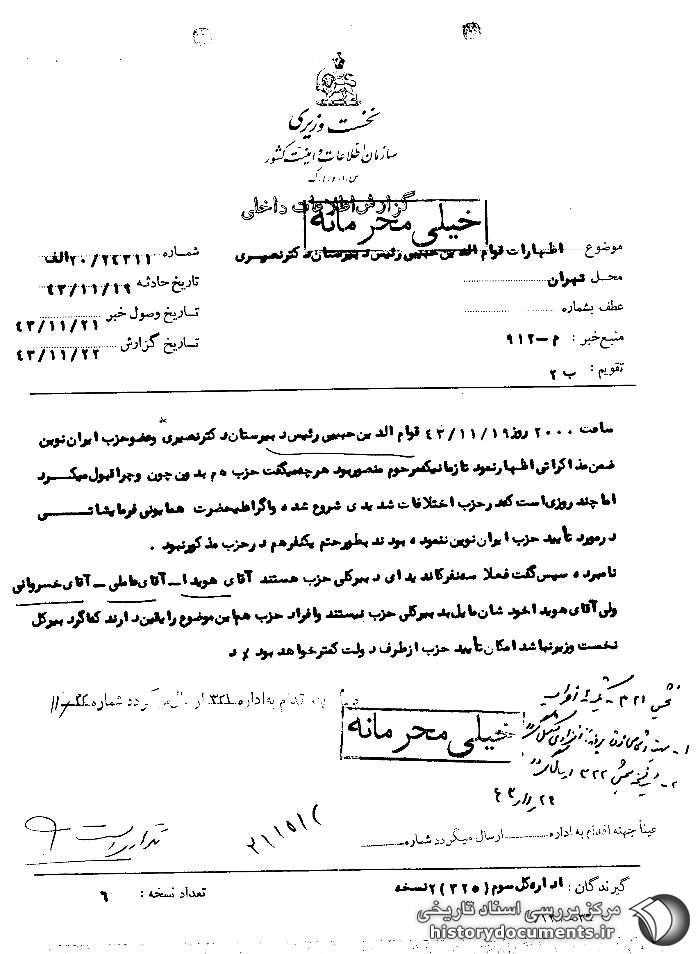 نخست وزیری
سازمان اطلاعات و امنیت کشور
س.ا.و.ا.ک
گزارش اطلاعات داخلی
خیلی محرمانه
موضوع اظهارات قوام الدین حبیبی رئیس دبیرستان دکتر نصیری
شماره ۲۰/۲۴۳۱۱الف
محل تهران
تاریخ حادثه ۴۳/۱۱/۱۹
عطف بشماره
تاریخ وصول خبر ۴۳/۱۱/۲۱
منبع خبر : م-۹۱۲
تاریخ گزارش ۴۳/۱۱/۲۲
تقویم : ب ۲
ساعت ۲۰۰۰ روز ۴۳/۱۱/۱۹ قوام الدین حبیبی رئیس دبیرستان دکتر نصیری وعضو حزب ایران نوین
ضمن مذاکراتی اظهار نمود تا زمانیکه مرحوم منصور بود هر چه میگفت حزب هم بدون چون و چرا قبول میکرد
اما چند روزی است که در حزب اختلافات شدیدی شروع شده واگر اعلیحضرت همایونی فرمایشاتی
در مورد تأیید حزب ایران نوین ننموده بودند بطور حتم یکنفر هم در حزب مذکور نبود .
نامبرده سپس گفت فعلا سه نفر کاندیدای دبیر کلی حزب هستند آقای هویدا - آقای عاملی - آقای خسروانی
ولی آقای هویدا خودشان مایل به دبیر کلی حزب نیستند وافراد حزب هم این موضوع را یقین دارند که اگر دبیر کل
نخست وزیر نباشد امکان تأیید حزب از طرف دولت کمتر خواهد بود
اقدام به اداره ۳۲۱ ارسال میگردد شماره
بخش ۳۲۱
خیلی محرمانه
۱-
۲- بخش ۳۲۲
عیناً جهته اقدام به اداره ارسال میگردد شماره
گیرندگان : اداره کل سوم (۳۲۵) ۲ نسخه
تعداد نسخه : ۶
مرکز بررسی اسناد تاریخی
historydocuments.ir